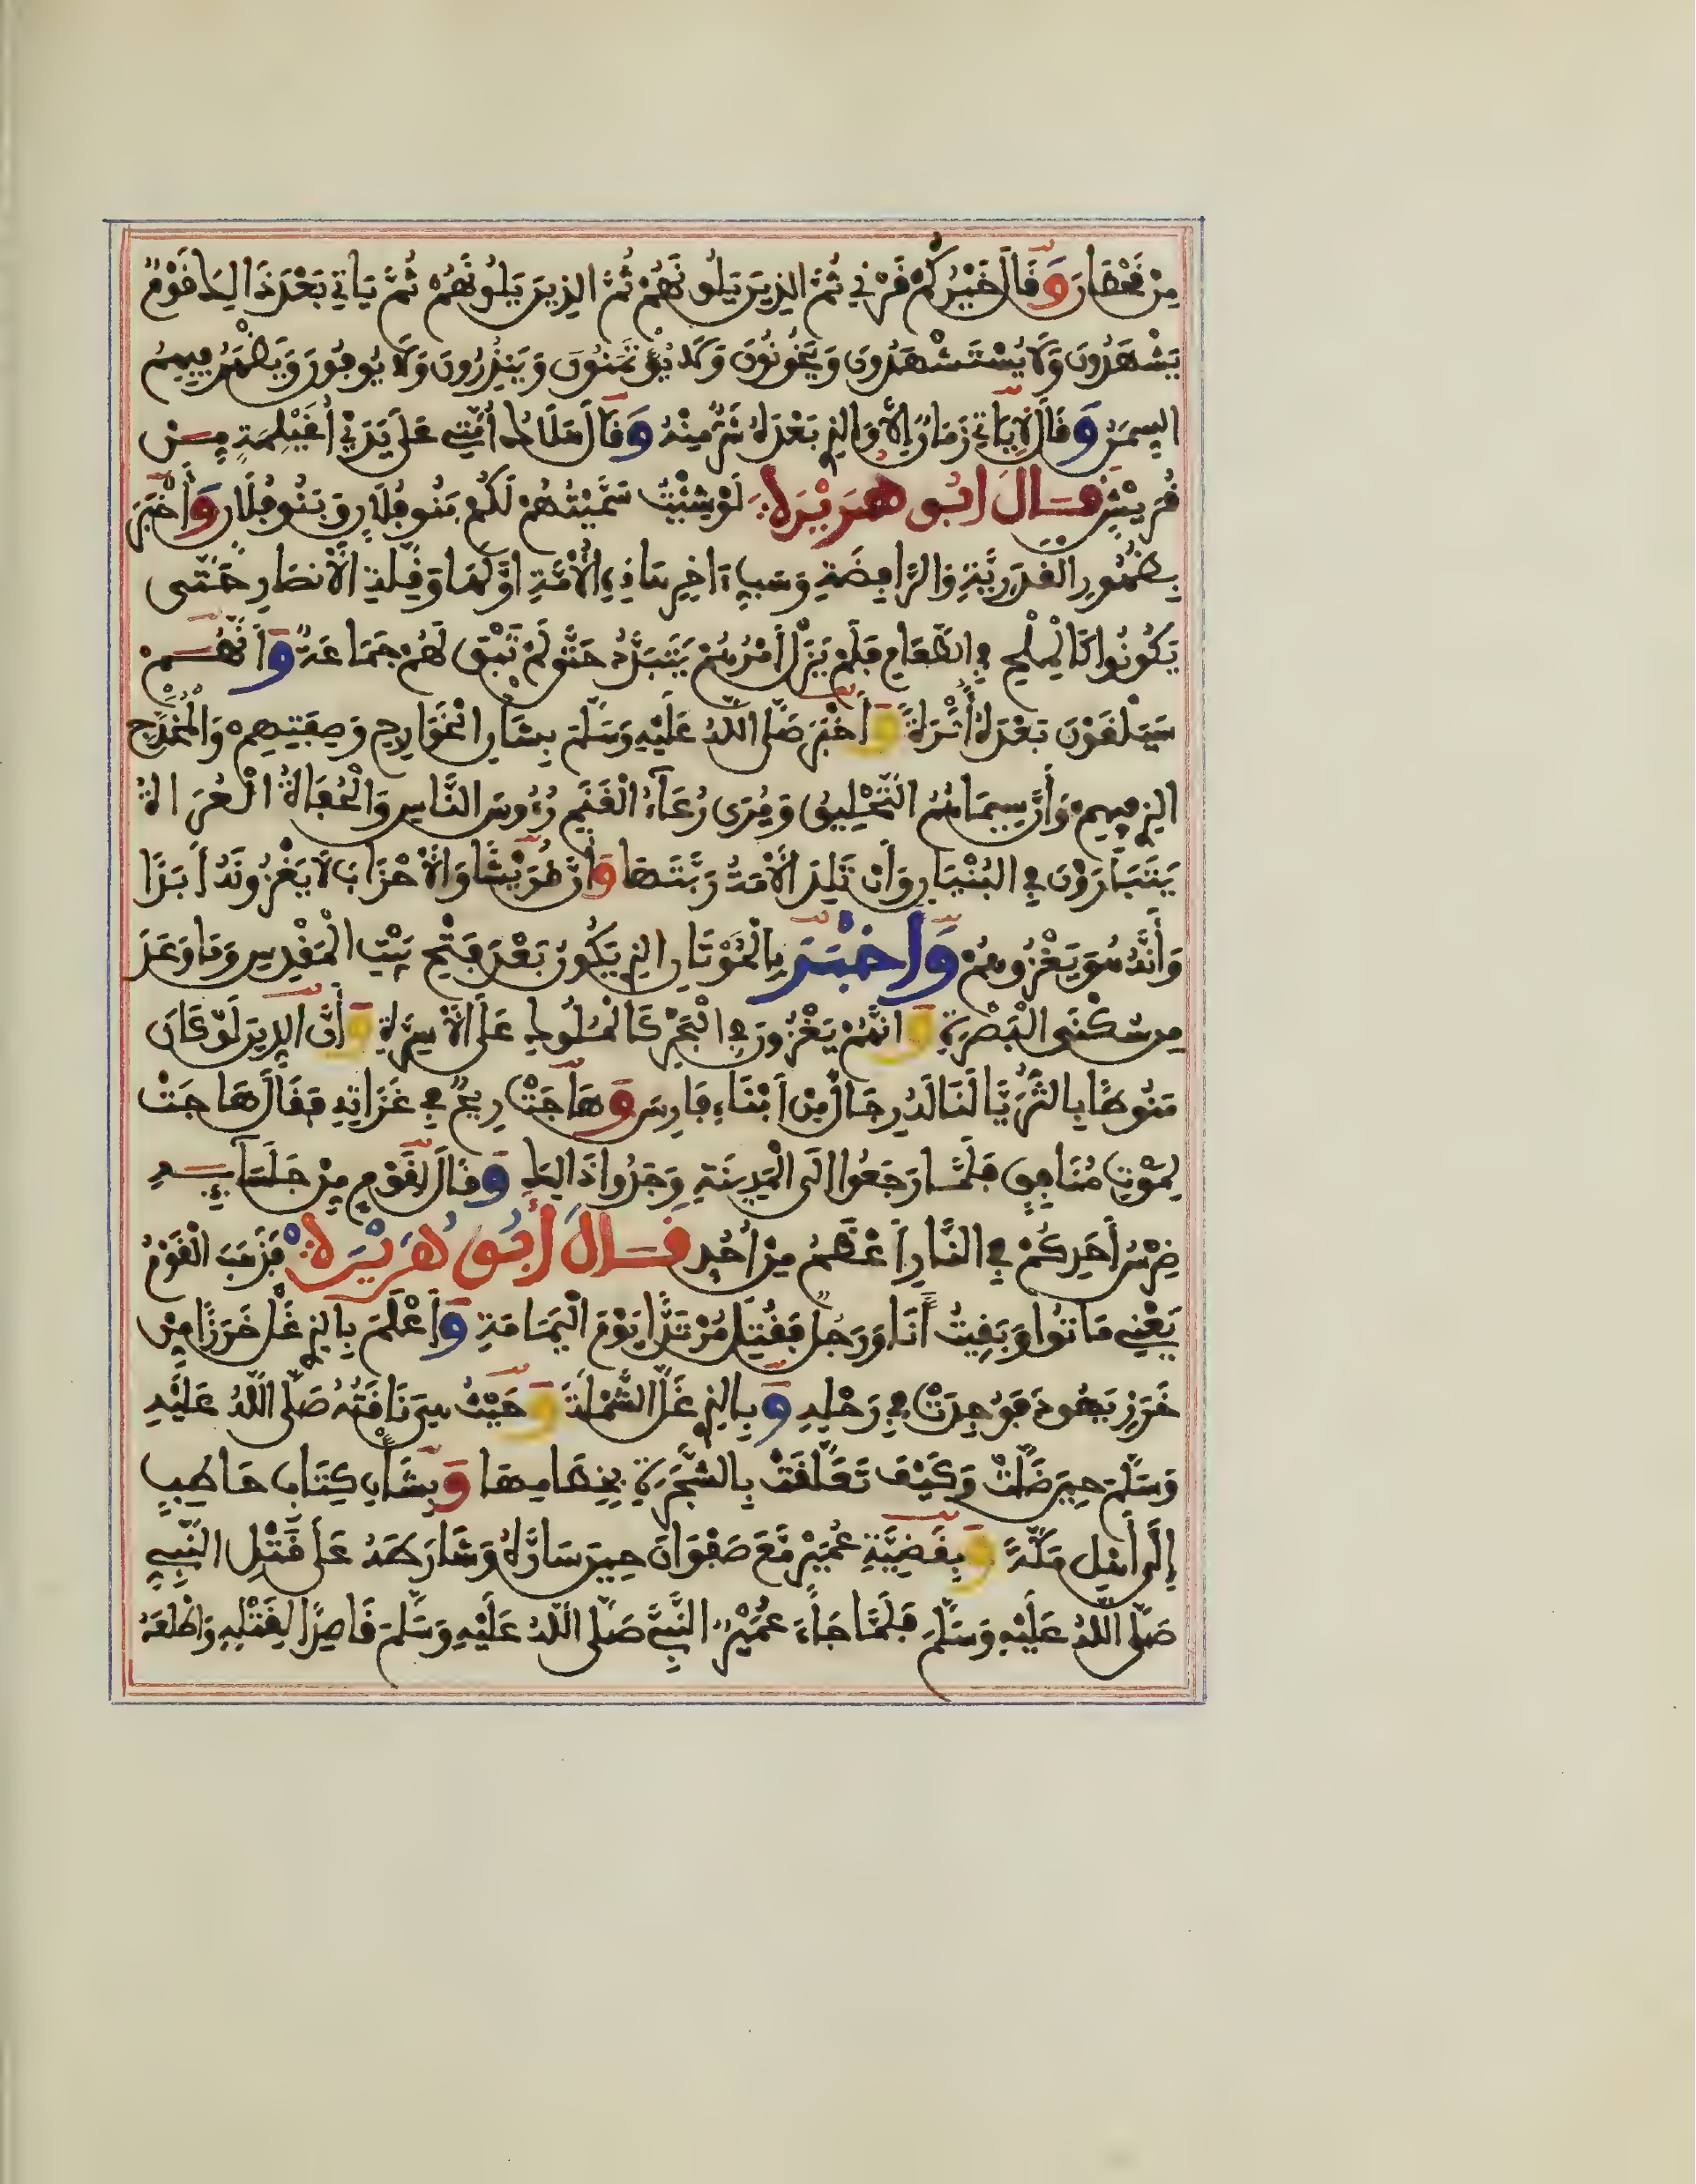 مِنْ قَحْطَانَ وَقَالَ خَيْرُكُمْ قَرْنِي ثُمَّ الذِينَ يَلُونَهُمْ ثُمَّ الذِينَ يَلُونَهُمْ ثُمَّ يَاتِي بَعْدَ ذَالِكَ قَوْمٌ
يَشْهَدُونَ وَلَا يُسْتَشْهَدُونَ وَيَخُونُونَ وَلَا يُؤْتَمَنُونَ وَيَنْذِرُونَ وَلَا يُوفُونَ وَيَظْهَرُ فِيهِمُ
السِّمَنُ وَقَالَ لَا يَاتِي زَمَانٌ إِلَّا وَالذِي بَعْدَهُ شَرٌّ مِنْهُ وَقَالَ هَلَاكُ أُمَّتِي عَلَى يَدَيْ أُغَيْلِمَةٍ مِنْ
قُرَيْشٍ قَالَ أَبُو هُرَيْرَةَ لَوْ شِئْتُ سَمَّيْتُهُمْ لَكُمْ بَنُو فُلَانٍ وَبَنُو فُلَانٍ وَأَخْبَرَ
بِظُهُورِ الْقَدَرِيَّةِ وَالرَّافِضَةِ وَسَبِّ ءَاخِرِ هَاذِهِ الْأُمَّةِ أَوَّلَهَا وَقِلَّةِ الْأَنْصَارِ حَتَّى
يَكُونُوا كَالْمِلْحِ فِي الطَّعَامِ فَلَمْ يَزَلْ أَمْرُهُمْ يَتَبَدَّدُ حَتَّى لَمْ تَبْقَ لَهُمْ جَمَاعَةٌ وَأَنَّهُمْ
سَيَلْقَوْنَ بَعْدَهُ أَثَرَةً وَأَخْبَرَ صَلَّى اللَّهُ عَلَيْهِ وَسَلَّمَ بِشَأْنِ الْخَوَارِجِ وَصِفَتِهِمْ وَالْمُخْدَجِ
الذِي فِيهِمْ وَأَنَّ سِيمَاهُمُ التَّحْلِيقُ وَيُرَى رُعَاءُ الْغَنَمِ رُءُوسَ النَّاسِ وَالْحُفَاةُ الْعُرَاةُ
يَتَبَارَوْنَ فِي الْبُنْيَانِ وَأَنْ تَلِدَ الْأَمَةُ رَبَّتَهَا وَأَنَّ قُرَيْشًا وَالْأَحْزَابَ لَا يَغْزُونَهُ أَبَدًا
وَأَنَّهُ هُوَ يَغْزُوهُمْ وَأَخْبَرَ بِالْمُوتَانِ الذِي يَكُونُ بَعْدَ فَتْحِ بَيْتِ الْمَقْدِسِ وَمَا وَعَدَ
مِنْ سُكْنَى الْبَصْرَةِ وَأَنَّهُمْ يَغْزُونَ فِي الْبَحْرِ كَالْمُلُوكِ عَلَى الْأَسِرَّةِ وَأَنَّ الدِّينَ لَوْ كَانَ
مَنُوطًا بِالثُّرَيَّا لَنَالَهُ رِجَالٌ مِنْ أَبْنَاءِ فَارِسَ وَهَاجَتْ رِيحٌ فِي غَزَاتِهِ فَقَالَ هَاجَتْ
لِمَوْتِ مُنَافِقٍ فَلَمَّا رَجَعُوا إِلَى الْمَدِينَةِ وَجَدُوا ذَالِكَ وَقَالَ لِقَوْمٍ مِنْ جُلَسَائِهِ
ضِرْسُ أَحَدِكُمْ فِي النَّارِ أَعْظَمُ مِنْ أُحُدٍ قَالَ أَبُو هُرَيْرَةَ فَذَهَبَ الْقَوْمُ
يَعْنِي مَاتُوا وَبَقِيتُ أَنَا وَرَجُلٌ فَقُتِلَ مُرْتَدًّا يَوْمَ الْيَمَامَةِ وَأَعْلَمَ بِالذِي غَلَّ خَرَزًا مِنْ
خَرَزِ يَهُودَ فَوُجِدَتْ فِي رَحْلِهِ وَبِالذِي غَلَّ الشَّمْلَةَ وَحَيْثُ هِيَ نَاقَتُهُ صَلَّى اللَّهُ عَلَيْهِ
وَسَلَّمَ حِينَ ضَلَّتْ وَكَيْفَ تَعَلَّقَتْ بِالشَّجَرَةِ بِخِطَامِهَا وَبِشَأْنِ كِتَابِ حَاطِبٍ
إِلَى أَهْلِ مَكَّةَ وَبِقَضِيَّةِ عُمَيْرٍ مَعَ صَفْوَانَ حِينَ سَارَّهُ وَشَارَطَهُ عَلَى قَتْلِ النَّبِيِّ
صَلَّى اللَّهُ عَلَيْهِ وَسَلَّمَ فَلَمَّا جَاءَ عُمَيْرٌ النَّبِيَّ صَلَّى اللَّهُ عَلَيْهِ وَسَلَّمَ قَاصِدًا لِقَتْلِهِ وَأَطْلَعَهُ